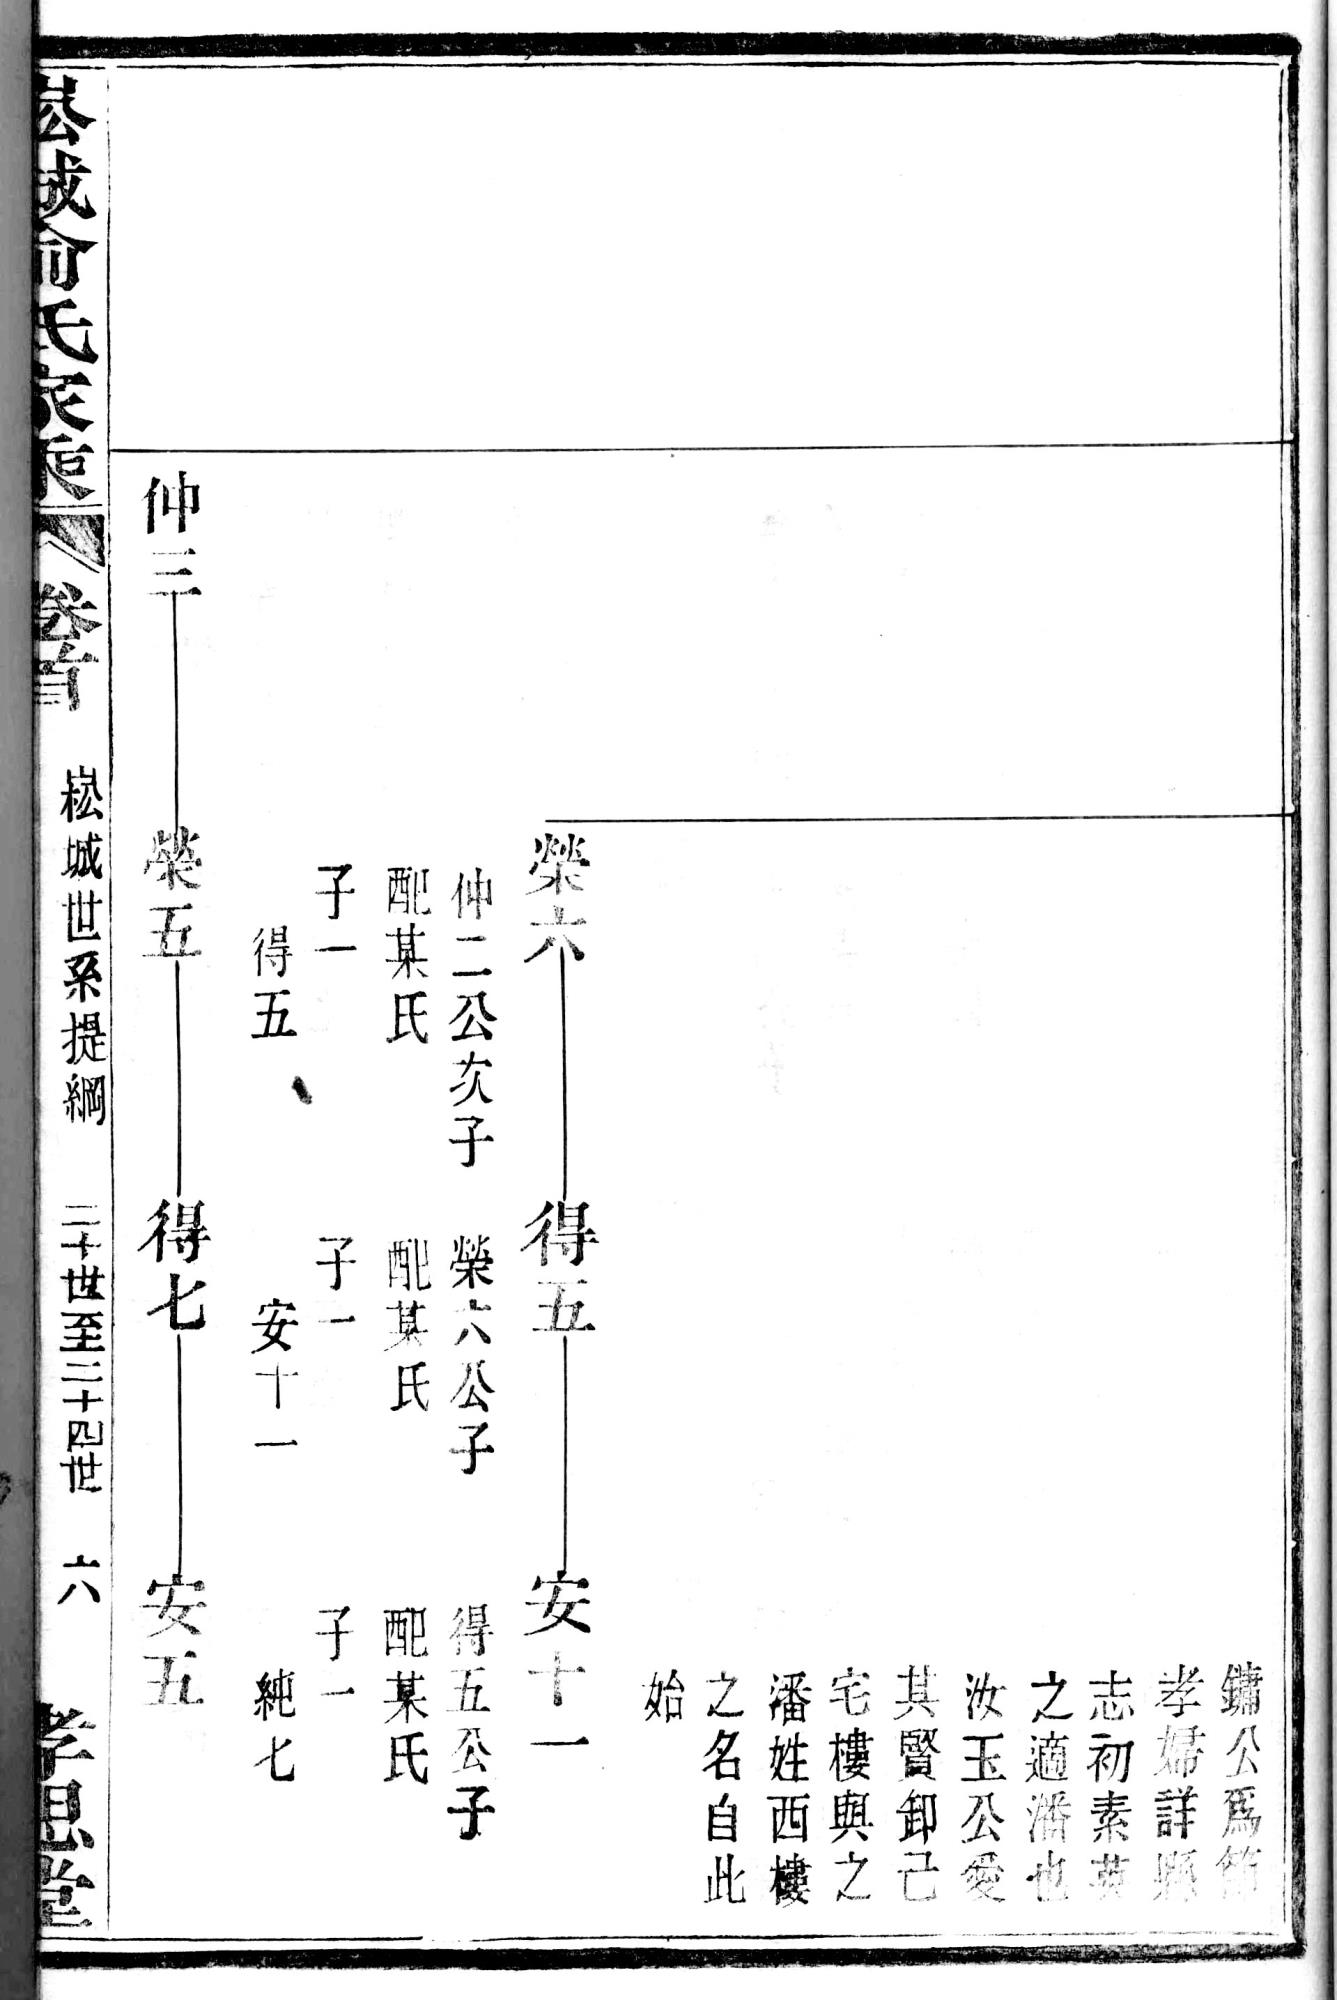 鏞公爲節
孝婦詳縣
志初素英
之適潘也
汝玉公愛
其賢卸己
宅樓與之
潘姓西樓
之名自此
始
榮六
得五
安十一
仲二公次子
榮六公子
得五公子
配某氏
配某氏
配某氏
子一
子一
子一
得五
安十一
純七
仲三
榮五
得七
安五
崧城俞氏家乘
卷首
崧城世系提綱
二十世至二十四世
六
孝思堂